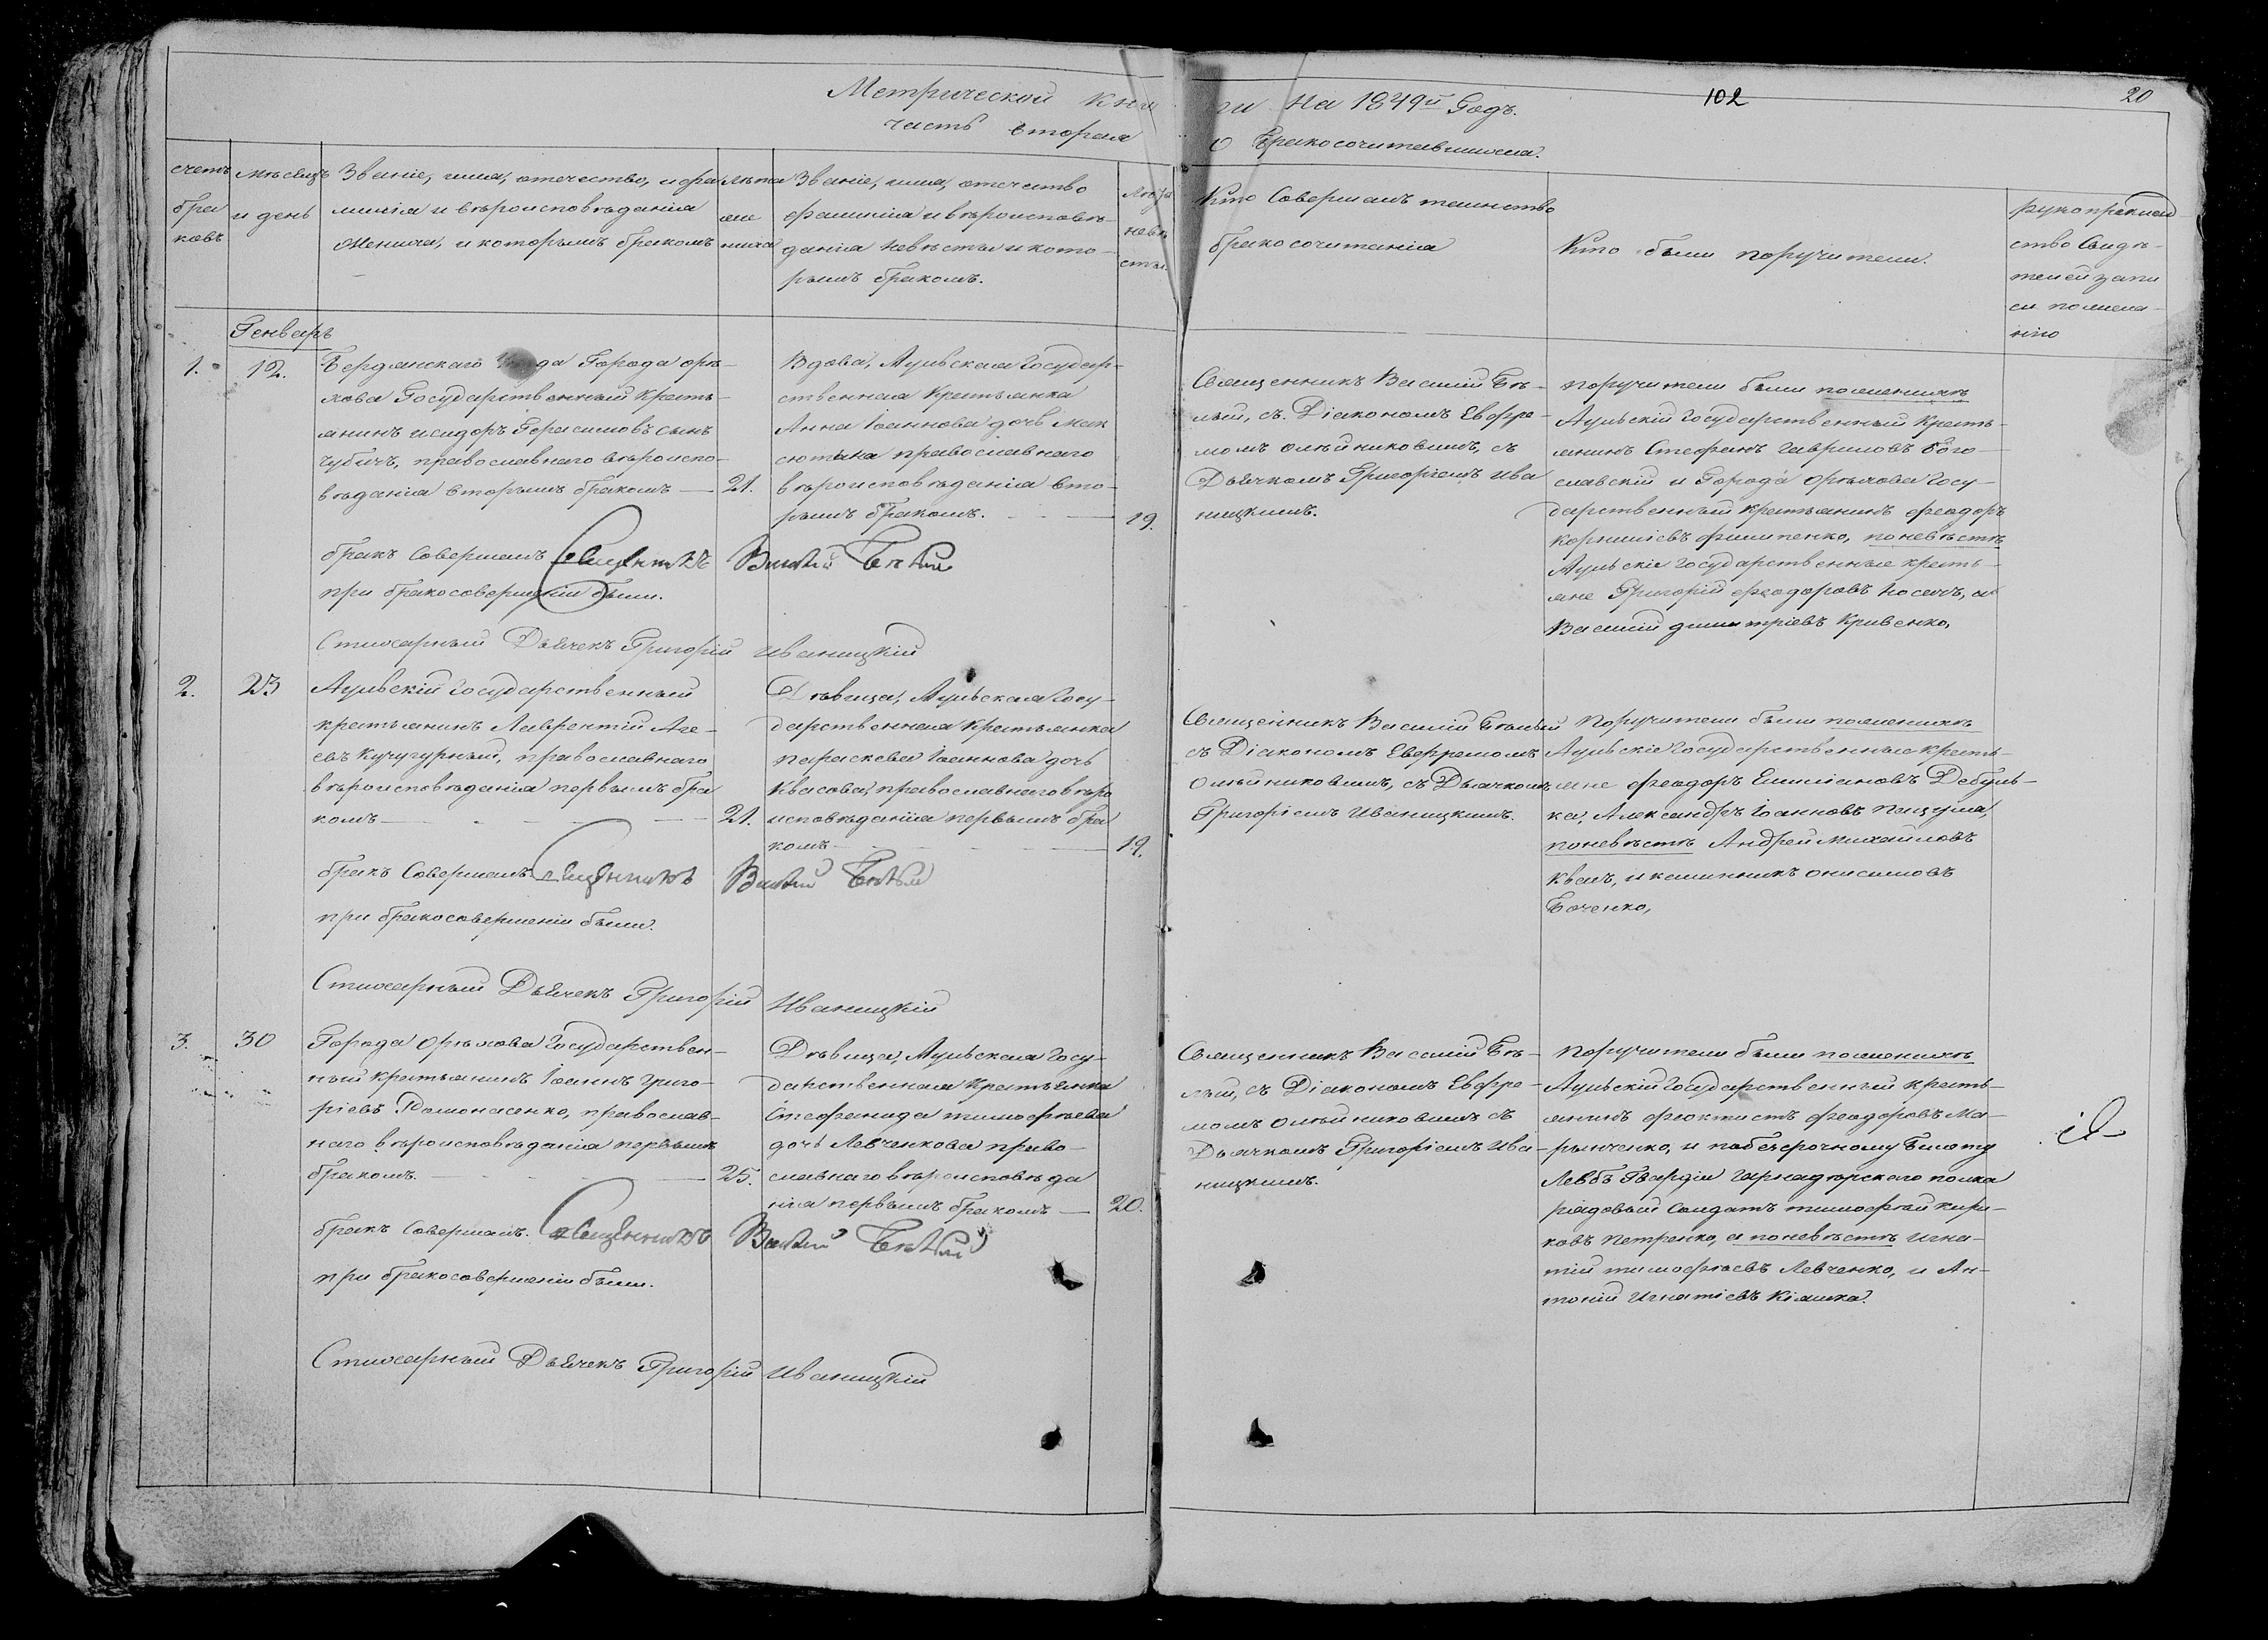 Метрической Книги на 1849й Годъ.
102
20
часть вторая
О Бракосочитавшихся.
счетъ браковъ
мѣсяцъ и день
Званіе, имя, отечество, и фа
милія и вѣроисповѣданія
Жениха, и которымъ бракомъ
лѣта
же
ниха
Званіе, имя, отечество
фамилія и вѣроисповѣ-
данія невѣсты и кото-
рымъ бракомъ.
лѣта
невѣ
сты.
Кто Совершалъ таинство
бракосочитанія
Кто были поручители.
рукоприклад-
ство Свидѣ-
телей запи
си по жела-
нію
Генварь
1.
12.
Бердянскаго Города Орѣ-
хова Государственный Кресть-
янинъ Исидоръ Герасимовъ сынъ
Чубичъ, православнаго вѣроиспо-
вѣданія вторымъ бракомъ — 21.
Вдова, Аульская Государ-
ственная Крестьянка
Анна Іоаннова дочь Мак
сютына православнаго
вѣроисповѣданія вто-
рымъ бракомъ. — 19.
Священникъ Василій Бѣ-
лый, съ Діакономъ Евфре-
момъ Олѣйниковымъ, съ
Дьячкомъ Григоріемъ Ива
ницкимъ.
поручители были по женихѣ
Аульскій Государственный Кресть-
янинъ Стефанъ Гавриловъ Бого-
славскій и Города Орѣхова Госу-
дарственный крестьянинъ Феодоръ
Корниліевъ Филипенко, по невѣстѣ
Аульскіе Государственные кресть-
яне Григорій Феодоровъ Носачъ, и
Василій Димитріевъ Кривенко,
бракъ Совершалъ Священникъ Василій Бѣлый
при бракосовершеніи были.
Стихарный Дьячекъ Григорій Иваницкій
2.
23
Аульскій Государственный
крестьянинъ Лаврентій Аге-
евъ Кучугурный, православнаго
вѣроисповѣданія первымъ бра
комъ — 21.
Дѣвица, Аульская Госу-
дарственная Крестьянка
Параскева Іоаннова дочь
Квасова, православнаго вѣро
исповѣданія первымъ бра
комъ — 19.
Священникъ Василій Бѣлый
съ Діакономъ Евфремомъ
Олѣйниковымъ, съ Дьячкомъ
Григоріемъ Иваницкимъ.
Поручители были по женихѣ
Аульскіе Государственные кресть-
яне Феодоръ Емиліановъ Дебуль-
ка, Александръ Іоанновъ Пацула,
по невѣстѣ Андрей Михайловъ
Квашъ, и Калинникъ Онисимовъ
Боченко,
бракъ Совершалъ Священникъ Василій Бѣлый
при бракосовершеніи были.
Стихарный Дьячекъ Григорій Иваницкій
3.
30
Города Орѣхова Государствен-
ный Крестьянинъ Іоаннъ Григо-
ріевъ Помонасенко, православ-
наго вѣроисповѣданія первымъ
бракомъ. — 25.
Дѣвица, Аульская Госу-
дарственная Крестьянка
Стефанида Тимофѣева
дочь Левченкова право-
славнаго вѣроисповѣда
нія первымъ бракомъ — 20.
Священникъ Василій Бѣ-
лый, съ Діакономъ Евфре-
момъ Олѣйниковымъ съ
Дьячкомъ Григоріемъ Ива-
ницкимъ.
Поручители были по женихѣ
Аульскій Государственный кресть-
янинъ Феоктистъ Феодоровъ Ма-
рынченко, и по безсрочному билету
Лейбъ Гвардіи Гарнадерскаго полка
рядовый Солдатъ Тимофѣй Кири-
ковъ Петренко, а по невѣстѣ Игна-
тій Тимофѣевъ Левченко, и Ан-
тоній Игнатіевъ Кіяшка.
бракъ Совершалъ. Священникъ Василій Бѣлый
при бракосовершеніи были.
Стихарный Дьячекъ Григорій Иваницкій